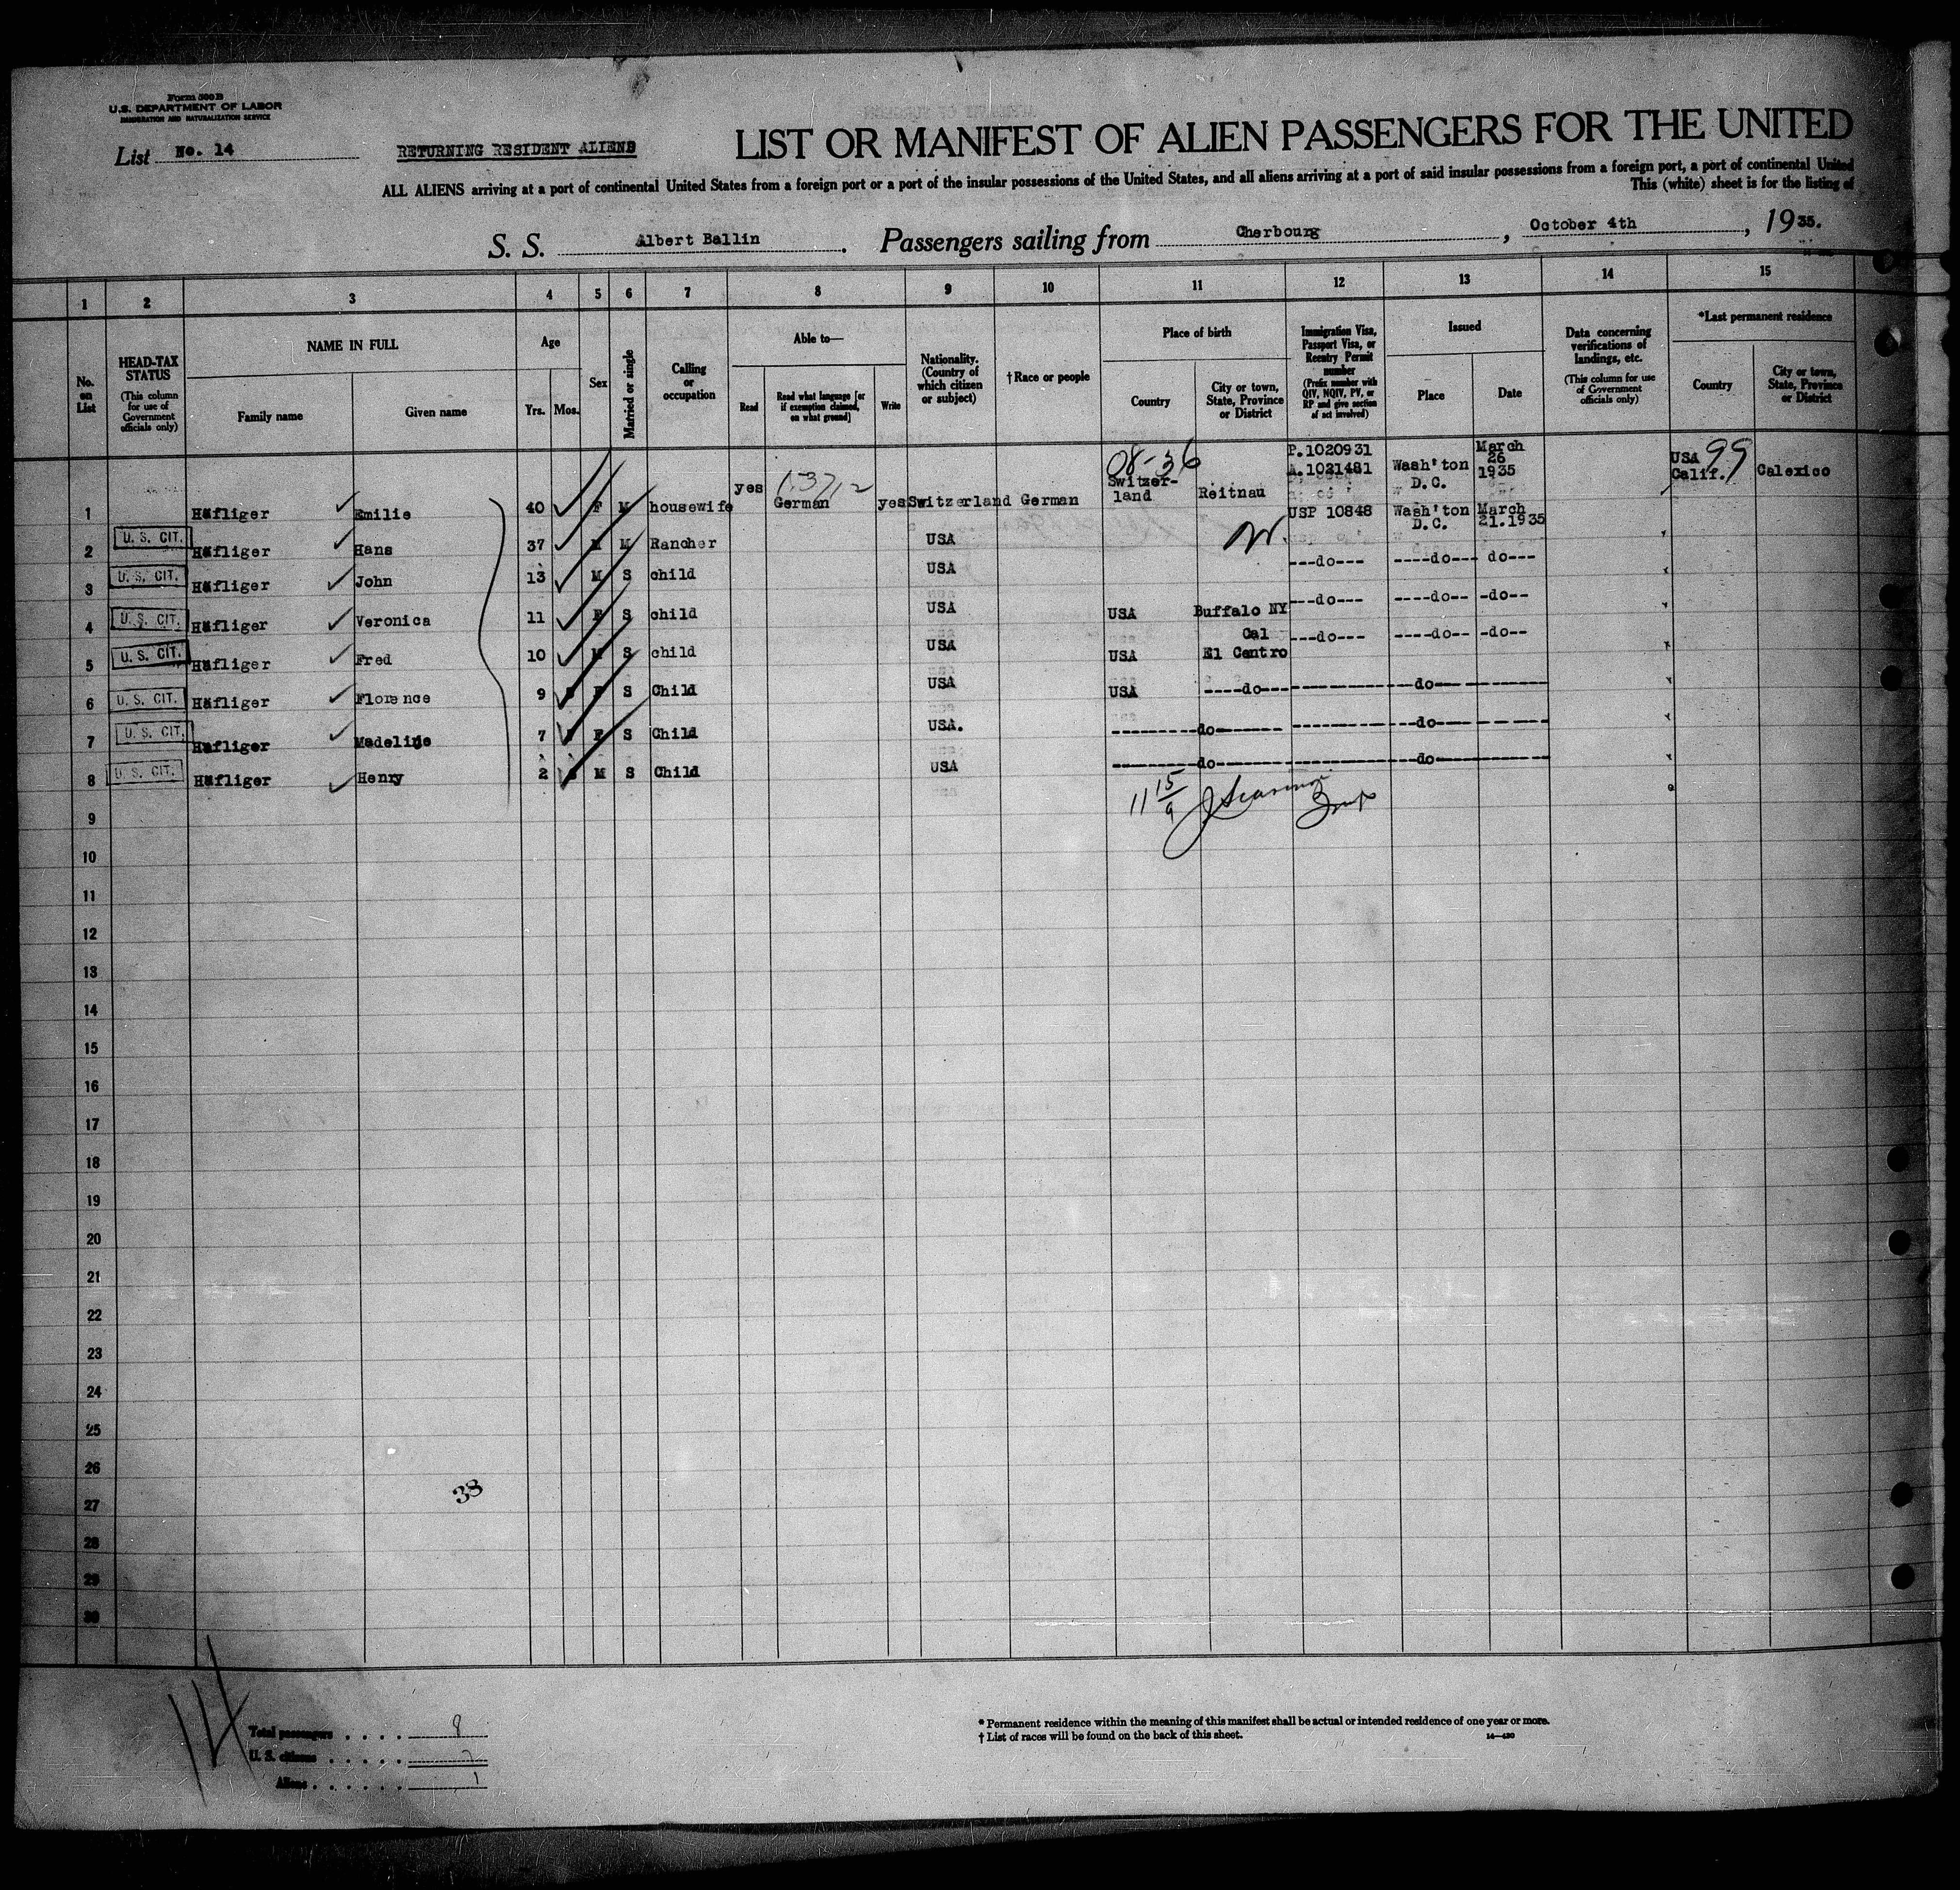 Form 500 B
U.S. DEPARTMENT OF LABOR
IMMIGRATION AND NATURALIZATION SERVICE
List No. 14
RETURNING RESIDENT ALIENS
LIST OR MANIFEST OF ALIEN PASSENGERS FOR THE UNITED
ALL ALIENS arriving at a port of continental United States from a foreign port or a port of the insular possessions of the United States, and all aliens arriving at a port of said insular possessions from a foreign port, a port of continental United
This (white) sheet is for the listing of
S. S. Albert Ballin. Passengers sailing from Cherbourg, October 4th, 1935.
1 2 3 4 5 6 7 8 9 10 11 12 13 14 15
No. on List
HEAD-TAX STATUS
(This column for use of Government officials only)
NAME IN FULL
Family name
Given name
Age
Yrs. Mos.
Sex
Married or single
Calling or occupation
Able to—
Read
Read what language [or if exemption claimed, on what ground]
Write
Nationality. (Country of which citizen or subject)
†Race or people
Place of birth
Country
City or town, State, Province or District
Immigration Visa, Passport Visa, or Reentry Permit number
(Prefix number with QIV, NQIV, PV, or RP and give section of act involved)
Issued
Place
Date
Data concerning verifications of landings, etc.
(This column for use of Government officials only)
*Last permanent residence
Country
City or town, State, Province or District
08-36
99
1 Häfliger Emilie 40 F M housewife yes German yes Switzerland German Switzer-land Reitnau P.1020931 A.1021481 Wash'ton D.C. March 26 1935 USA Calif. Calexico
2 U. S. CIT. Häfliger Hans 37 M M Rancher USA USP 10848 Wash'ton D.C. March 21.1935
3 U. S. CIT. Häfliger John 13 M S child USA ---do--- ----do--- do---
4 U. S. CIT. Häfliger Veronica 11 F S child USA USA Buffalo NY ---do--- ----do-- -do--
5 U. S. CIT. Häfliger Fred 10 M S child USA USA Cal El Centro ---do--- ----do-- -do--
6 U. S. CIT. Häfliger Florence 9 F S Child USA USA ----do---- ----do----
7 U. S. CIT. Häfliger Madeline 7 F S Child USA. ----do---- ----do----
8 U. S. CIT. Häfliger Henry 2 M S Child USA ----do---- ----do----
11 15/9
9
10
11
12
13
14
15
16
17
18
19
20
21
22
23
24
25
26
27
28
29
30
38
14
Total passengers . . . . 8
U. S. citizens . . . . . 7
Aliens . . . . . . 1
* Permanent residence within the meaning of this manifest shall be actual or intended residence of one year or more.
† List of races will be found on the back of this sheet.
14—430